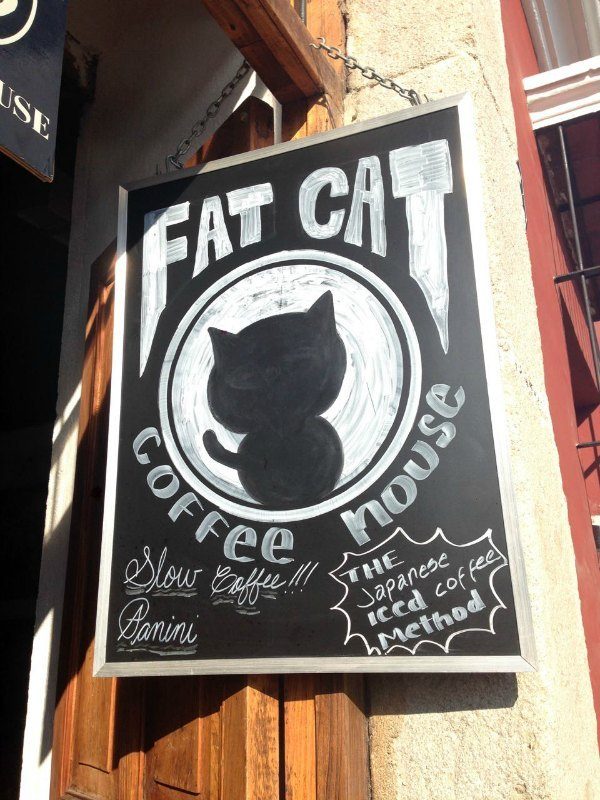 USE
FAT CAT
coffee House
Slow Coffee!!!
Panini
THE
Japanese
Iced coffee
Method